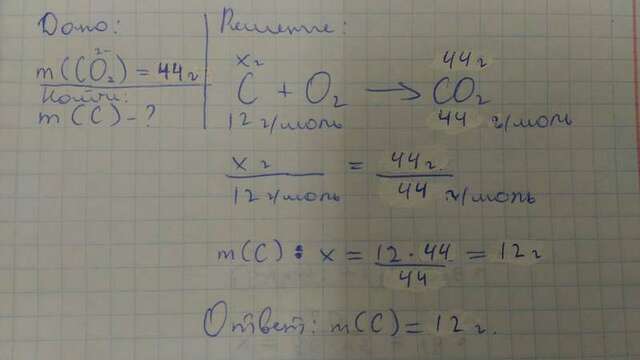 Дано:
m(CO₂) = 44 г
Найти:
m(C) - ?
Решение:
x г 44 г
C + O₂ → CO₂
12 г/моль 44 г/моль
x г / 12 г/моль = 44 г / 44 г/моль
m(C): x = 12 · 44 / 44 = 12 г
Ответ: m(C) = 12 г.